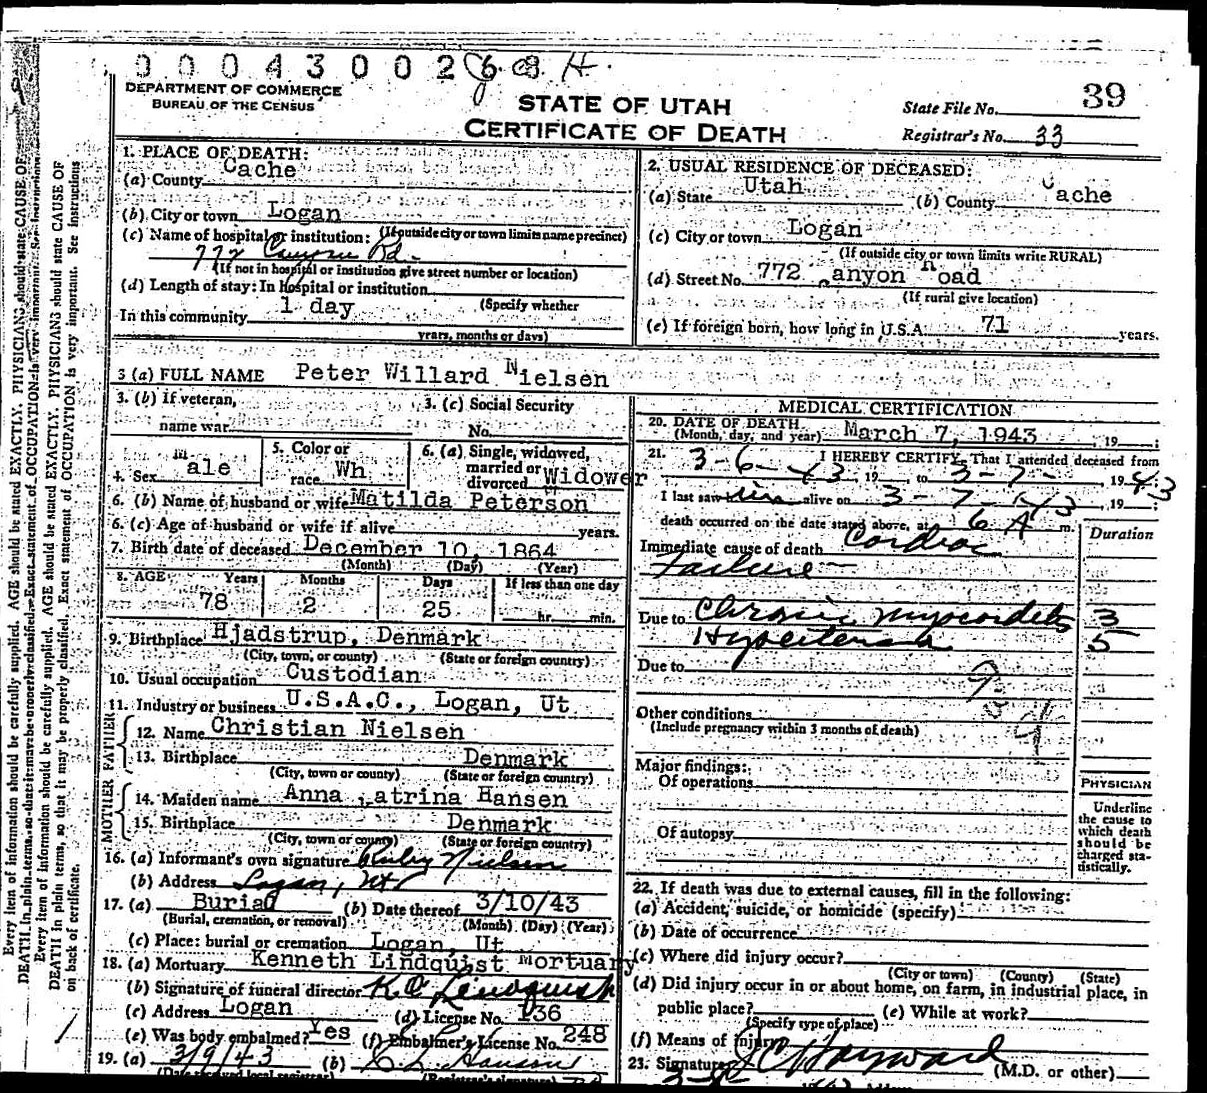 0 0 0 4 3 0 0 2 6
DEPARTMENT OF COMMERCE
BUREAU OF THE CENSUS
STATE OF UTAH
CERTIFICATE OF DEATH
State File No. 39
Registrar's No. 33
1. PLACE OF DEATH:
(a) County Cache
(b) City or town Logan
(If outside city or town limits name precinct)
(c) Name of hospital or institution:
772 Canyon Rd.
(If not in hospital or institution give street number or location)
(d) Length of stay: In hospital or institution
(Specify whether
In this community 1 day
years, months or days)
2. USUAL RESIDENCE OF DECEASED:
(a) State Utah (b) County Cache
(c) City or town Logan
(If outside city or town limits write RURAL)
(d) Street No. 772 anyon Road
(If rural give location)
(e) If foreign born, how long in U.S.A. 71 years.
3 (a) FULL NAME Peter Willard Nielsen
3. (b) If veteran, name war
3. (c) Social Security No.
4. Sex male
5. Color or race Wh
6. (a) Single, widowed, married or divorced Widower
6. (b) Name of husband or wife Matilda Peterson
6. (c) Age of husband or wife if alive years.
7. Birth date of deceased December 10, 1864
(Month) (Day) (Year)
8. AGE Years 78 Months 2 Days 25 If less than one day hr. min.
9. Birthplace Hjadstrup, Denmark
(City, town, or county) (State or foreign country)
10. Usual occupation Custodian
11. Industry or business U.S.A.C., Logan, Ut
FATHER
12. Name Christian Nielsen
13. Birthplace Denmark
(City, town or county) (State or foreign country)
MOTHER
14. Maiden name Anna atrina Hansen
15. Birthplace Denmark
(City, town or county) (State or foreign country)
16. (a) Informant's own signature Ruby Nielsen
(b) Address Logan, Ut
17. (a) Burial (b) Date thereof 3/10/43
(Burial, cremation, or removal) (Month) (Day) (Year)
(c) Place: burial or cremation Logan, Ut
18. (a) Mortuary Kenneth Lindquist Mortuary
(b) Signature of funeral director K O Lindquist
(c) Address Logan (d) License No. 136
(e) Was body embalmed? Yes (f) Embalmer's License No. 248
19. (a) 3/9/43 (b)
(Date received local registrar) (Registrar's signature)
MEDICAL CERTIFICATION
20. DATE OF DEATH
(Month, day, and year) March 7, 1943, 19 ;
21. I HEREBY CERTIFY, That I attended deceased from
3-6-43, 19 to 3-7-, 1943
I last saw him alive on 3-7-43, 19 ;
death occurred on the date stated above, at 6 A m.
Duration
Immediate cause of death Cardiac
Failure
Due to Chronic myocarditis 3
Hypertension 5
Due to
Other conditions
(Include pregnancy within 3 months of death)
Major findings:
Of operations
Of autopsy
PHYSICIAN
Underline
the cause to
which death
should be
charged sta-
tistically.
22. If death was due to external causes, fill in the following:
(a) Accident, suicide, or homicide (specify)
(b) Date of occurrence
(c) Where did injury occur?
(City or town) (County) (State)
(d) Did injury occur in or about home, on farm, in industrial place, in
public place? (e) While at work?
(Specify type of place)
(f) Means of injury
23. Signature J C Hayward (M.D. or other)
Every item of information should be carefully supplied. AGE should be stated EXACTLY. PHYSICIANS should state CAUSE OF
DEATH in plain terms, so that it may be properly classified. Exact statement of OCCUPATION is very important. See instructions
Every item of information should be carefully supplied. AGE should be stated EXACTLY. PHYSICIANS should state CAUSE OF
DEATH in plain terms, so that it may be properly classified. Exact statement of OCCUPATION is very important. See instructions
on back of certificate.